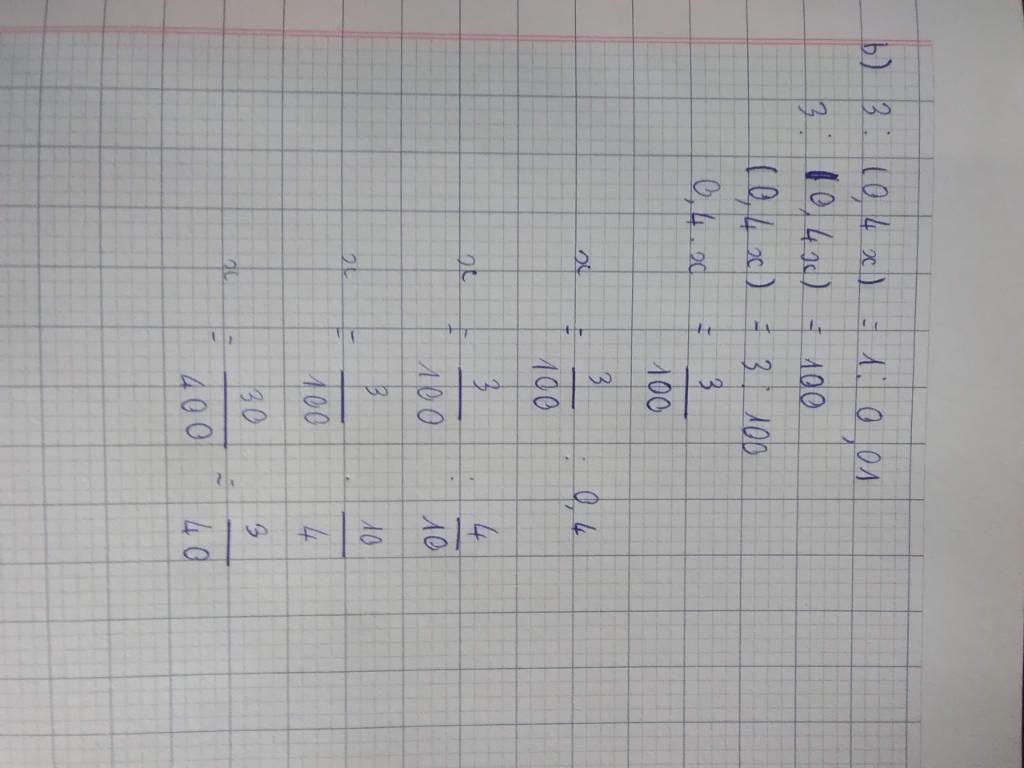 b) 3 : (0,4x) = 1 : 0,01
3 : (0,4x) = 100
(0,4x) = 3 : 100
0,4.x = 3/100
x = 3/100 : 0,4
x = 3/100 : 4/10
x = 3/100 . 10/4
x = 30/400 = 3/40